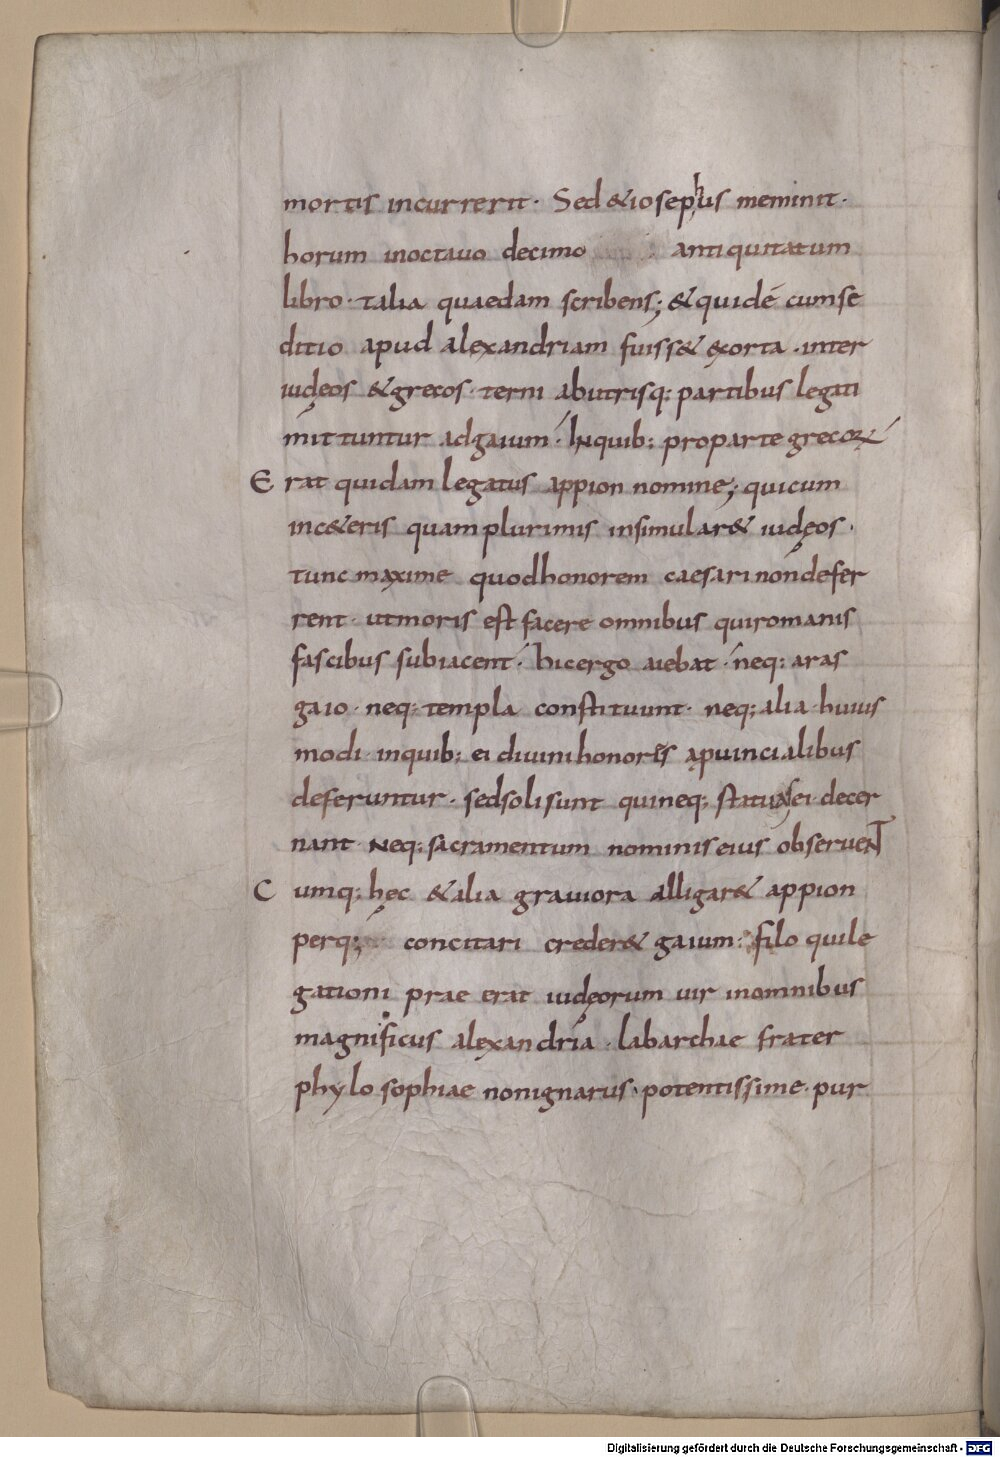 mortis incurrerit · Sed & iosephus meminit ·
horum inoctauo decimo antiquitatum
libro · talia quaedam scribens; & quidē cumse
ditio apud alexandriam fuiss& exorta · inter
iudęos & grecos · terni abutrisq: partibus legati
mittuntur adgaium · Inquib: proparte grecoꝝ
Erat quidam legatus appion nomine; quicum
inc&eris quam plurimis insimular& iudęos ·
tunc maxime quodhonorem caesari nondefer
rent · utmoris est facere omnibus quiromanis
fascibus subiacent · hicergo aiebat · neq: aras
gaio · neq: templa constituunt · neq; alia huius
modi inquib: ei diuinihonoris a ꝓuincialibus
deferuntur · sedsolisunt quineq; statuas ei decer
nant Neq: sacramentum nominis eius obseruenT
Cumq; hęc & alia grauiora alligar& appion
perq; concitari creder& gaium · filo quile
gationi prae erat iudęorum uir inomnibus
magnificus alexandria · labarchae frater
phylosophiae nonignarus · potentissime · pur
Digitalisierung gefördert durch die Deutsche Forschungsgemeinschaft - DFG